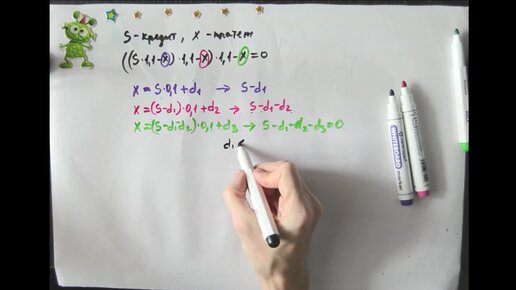 S-кредит, X-платеж
((S·1,1-X)·1,1-X)·1,1-X=0
X=S·0,1+d₁ → S-d₁
X=(S-d₁)·0,1+d₂ → S-d₁-d₂
X=(S-d₁d₂)·0,1+d₃ → S-d₁-d₂-d₃=0
d₁